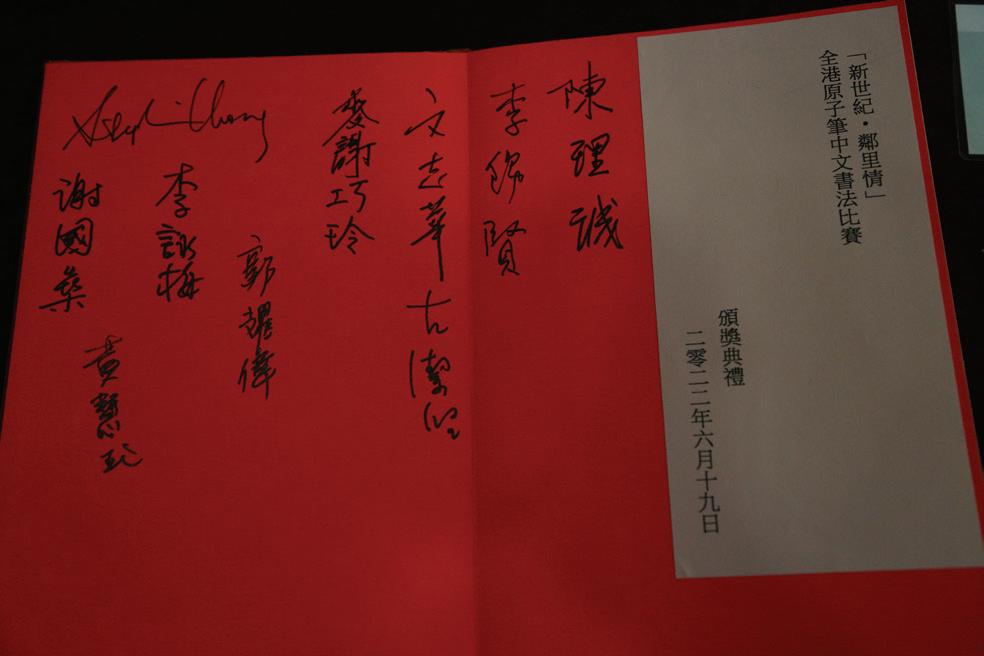 「新世紀・鄰里情」
全港原子筆中文書法比賽
頒獎典禮
二零二二年六月十九日
陳理誠
李錦賢
文志華
麥謝巧玲
郭耀偉
李詠梅
謝國樑